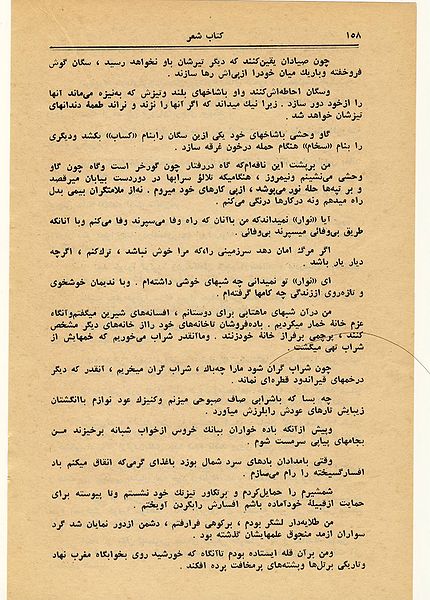 ۱۵۸
کتاب شعر
چون صیادان یقین‌کنند که دیگر تیرشان باو نخواهد رسید ، سگان گوش
فروخفته وباریك میان خودرا ازپی‌اش رها سازند .
وسگان احاطه‌اش‌کنند واو باشاخهای بلند وتیزش که‌به‌نیزه می‌ماند آنها
را ازخود دور سازد . زیرا نیك میداند که اگر آنها را نزند و نراند طعمهٔ دندانهای
تیزشان خواهد شد .
گاو وحشی باشاخهای خود یکی ازین سگان رابنام «کساب» بکشد ودیگری
را بنام «سخام» هنگام حمله درخون غرقه سازد .
من برپشت این ناقه‌ام‌که گاه دررفتار چون گورخر است وگاه چون گاو
وحشی می‌نشینم ونیمروز ، هنگامیکه تلالؤ سرابها در دوردست بیابان میرقصد
و بر تپه‌ها حلهٔ نور می‌پوشد ، ازپی کارهای خود میروم . نه‌از ملامتگران بیمی بدل
راه میدهم ونه درکارها درنگی می‌کنم .
آیا «نوار» نمیداندکه من باآنان که راه وفا می‌سپرند وفا می‌کنم وبا آنانکه
طریق بی‌وفائی میسپرند بی‌وفائی .
اگر مرگ امان دهد سرزمینی راءکه مرا خوش نباشد ، ترك‌کنم ، اگرچه
دیار یار باشد .
ای «نوار» تو نمیدانی چه شبهای خوشی داشته‌ام . وبا ندیمان خوشخوی
و تازه‌روی اززندگی چه کامها گرفته‌ام .
من درآن شبهای ماهتابی برای دوستانم ، افسانه‌های شیرین میگفتم‌وآنگاه
عزم خانهٔ خمار میکردیم . باده‌فروشان تاخانه‌های خود رااز خانه‌های دیگر مشخص
کنند ، پرچمی برفراز خانهٔ خودزنند . وماآنقدر شراب می‌خوریم که خمهایش از
شراب تهی میگشت .
چون شراب گران شود مارا چه‌باك ، شراب گران میخریم ، آنقدر که دیگر
درخمهای قیراندود قطره‌ای نماند .
چه بسا که باشرابی صاف صبوحی میزنم وکنیزك عود نوازم باانگشتان
زیبایش تارهای عودش رابلرزش میاورد .
وپیش ازآنکه باده خواران ببانك خروس ازخواب شبانه برخیزند مـن
بجامهای پیاپی سرمست شوم .
وقتی بامدادان بادهای سرد شمال بوزد باغدای گرمی‌که انفاق میکنم باد
افسارگسیخته را رام می‌سازم .
شمشیرم را حمایل‌کردم و برتکاور تیزتك خود نشستم وتا پیوسته برای
حمایت ازقبیلهٔ خودآماده باشم افسارش رابگردن آویختم .
من طلایه‌دار لشگر بودم ، برکوهی فرارفتم ، دشمن ازدور نمایان شد گرد
سواران ازمد منجوق علمهایشان گذشته بود .
ومن برآن قله ایستاده بودم تاآنگاه که خورشید روی بخوابگاه مغرب نهاد
وتاریکی برتل‌ها وپشته‌های پرمخافت پرده افکند .